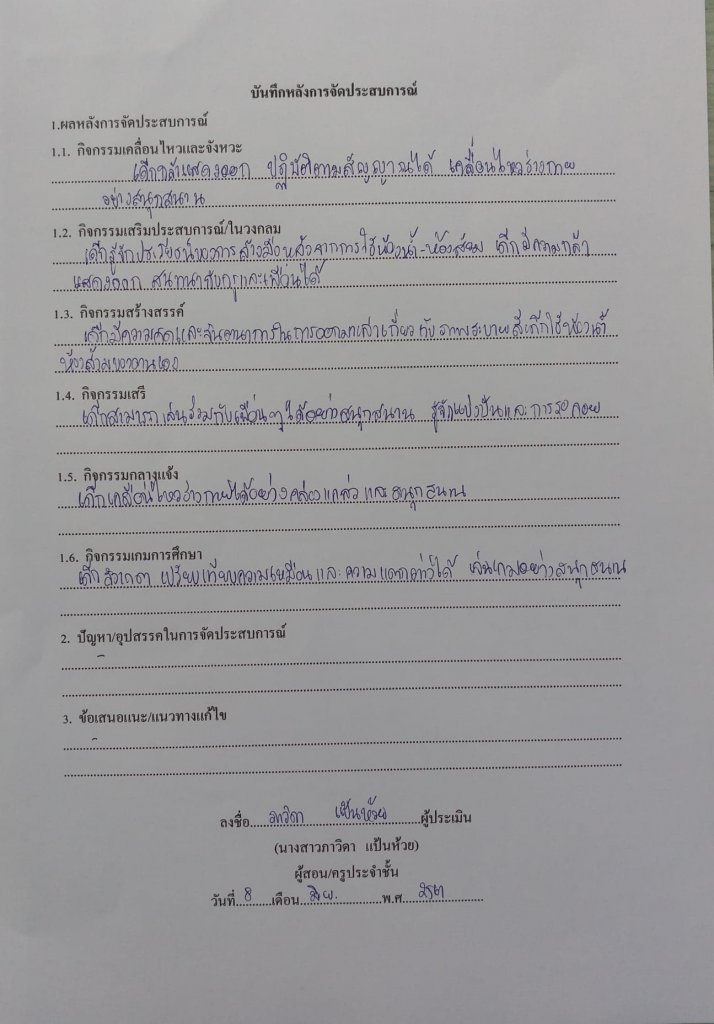 บันทึกหลังการจัดประสบการณ์
1.ผลหลังการจัดประสบการณ์
1.1. กิจกรรมเคลื่อนไหวและจังหวะ
เด็กกล้าแสดงออก ปฏิบัติตามสัญญาณได้ เคลื่อนไหวร่างกาย
อย่างสนุกสนาน
1.2. กิจกรรมเสริมประสบการณ์/ในวงกลม
เด็กรู้จักประโยชน์ของการล้างมือหลังจากการใช้ห้องน้ำ-ห้องส้วม เด็กมีความกล้า
แสดงออก สนทนากับครูและเพื่อนได้
1.3. กิจกรรมสร้างสรรค์
เด็กมีความคิดและจินตนาการในการออกมาเล่าเกี่ยวกับภาพระบายสีเด็กใช้ห้องน้ำ
ห้องส้วมของตนเอง
1.4. กิจกรรมเสรี
เด็กสามารถเล่นร่วมกับเพื่อนๆได้อย่างสนุกสนาน รู้จักแบ่งปันและการรอคอย
1.5. กิจกรรมกลางแจ้ง
เด็กเคลื่อนไหวร่างกายได้อย่างคล่องแคล่วและสนุกสนาน
1.6. กิจกรรมเกมการศึกษา
เด็กสังเกต เปรียบเทียบความเหมือนและความแตกต่างได้ เล่นเกมอย่างสนุกสนาน
2. ปัญหา/อุปสรรคในการจัดประสบการณ์
-
3. ข้อเสนอแนะ/แนวทางแก้ไข
-
ลงชื่อ ภาวิดา แป้นห้วย ผู้ประเมิน
(นางสาวภาวิดา แป้นห้วย)
ผู้สอน/ครูประจำชั้น
วันที่ 8 เดือน มิ.ย. พ.ศ.